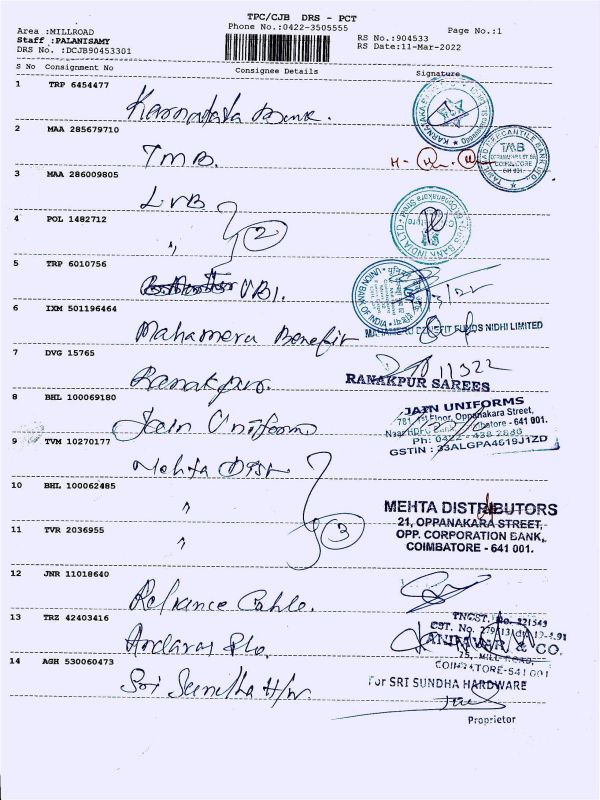 TPC/CJB DRS - PCT
Phone No.:0422-3505555
Page No.:1
Area :MILLROAD
Staff :PALANISAMY
DRS No. :DCJB90453301
RS No.:904533
RS Date:11-Mar-2022
S No Consignment No Consignee Details Signature
1 TRP 6454477
Karnataka Bank.
2 MAA 285679710
TMB.
TMB
COIMBATORE
641 001.
3 MAA 286009805
LVB
4 POL 1482712
"
2
5 TRP 6010756
UBI.
UNION BANK OF INDIA
6 IXM 501196464
Mahameru Benefit
MAHAMERU BENEFIT FUNDS NIDHI LIMITED
7 DVG 15765
Ranakpur.
RANAKPUR SAREES
8 BHL 100069180
Jain Uniform
JAIN UNIFORMS
781, 1st Floor, Oppanakara Street,
Near HDFC Bank, Coimbatore - 641 001.
Ph: 0422 - 438 2686
GSTIN : 33ALGPA4619J1ZD
9 TVM 10270177
Mehta Dist
10 BHL 100062485
"
MEHTA DISTRIBUTORS
21, OPPANAKARA STREET,
OPP. CORPORATION BANK,
COIMBATORE - 641 001.
11 TVR 2036955
"
3
12 JNR 11018640
Reliance Cable.
13 TRZ 42403416
TNGST. No. 221543
CST. No.
& CO.
75, MILL ROAD,
COIMBATORE-541 001
14 AGH 530060473
Sri Sundha H/w.
For SRI SUNDHA HARDWARE
Proprietor